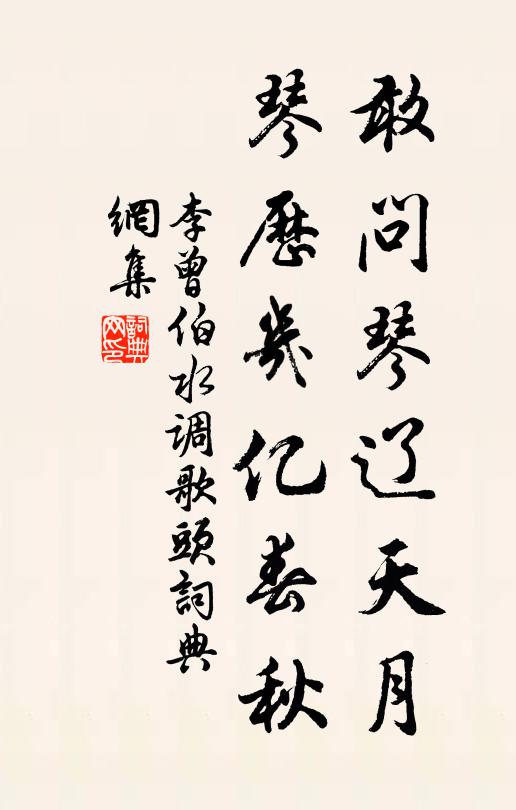 敢问琴辽天月
琴歷幾亿春秋
李曾伯水调歌頭詞典
網集
詞典
网印